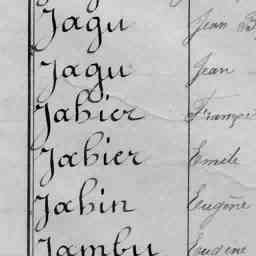 Jagu Jean B
Jagu Jean
Jahier
Jahier Emile
Jahin Eugène
Jambu Eugène